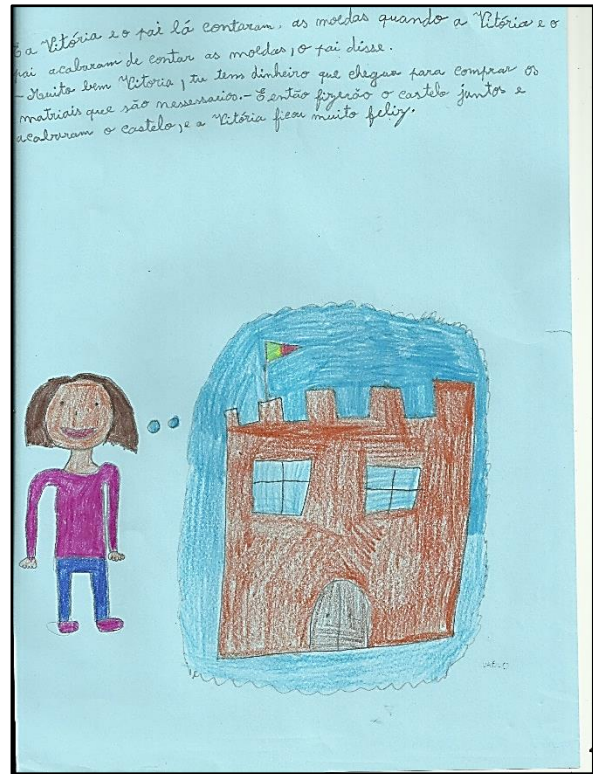 E a Vitória e o pai lá contaram, as moedas quando a Vitória e o
pai acabaram de contar as moedas, o pai disse.
- Muito bem Vitória, tu tens dinheiro que chegue para comprar os
matriais que são nessessarios. - E então fizerão o castelo juntos e
acabaram o castelo, e a Vitória ficou muito feliz.